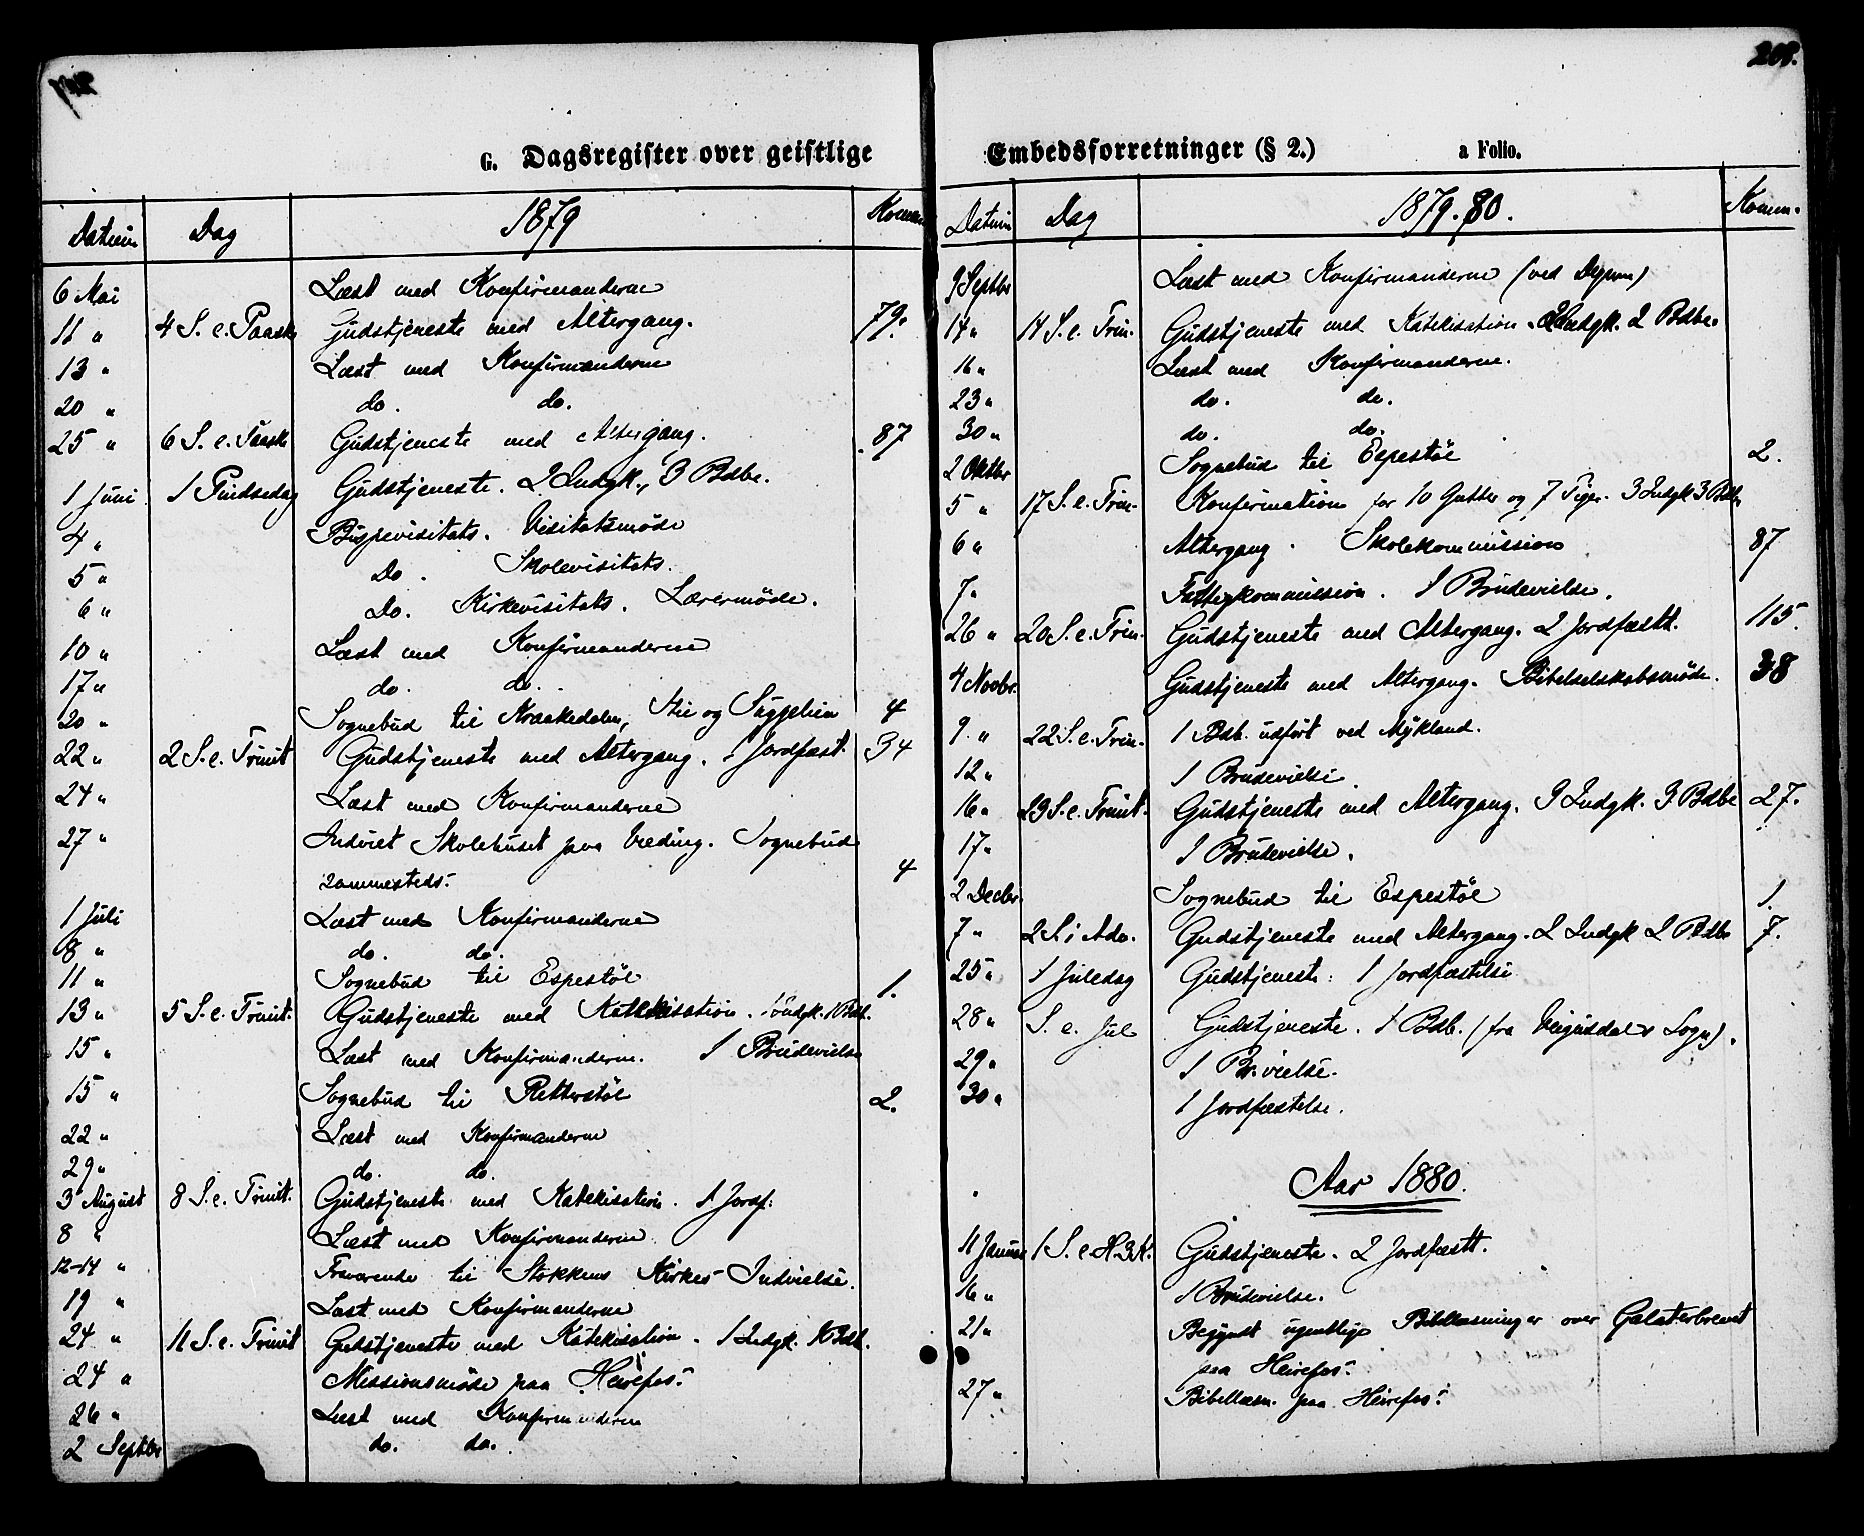 208.
G. Dagsregister over geistlige
Datum Dag 1879 Komm.
6 Mai Læst med Konfirmanderne
11 " 4 S. e. Paaske Gudstjeneste med Altergang. 79.
13 " Læst med Konfirmanderne
20 " do. do.
25 " 6 S. e. Paaske Gudstjeneste med Altergang. 87
1 Juni 1 Pindsedag Gudstjeneste. 2 Indgk., 3 Bdbe.
4 " Bispevisitats. Visitatsmøde
5 " Do. Skolevisitats.
6 " Do. Kirkevisitats. Lærermøde.
10 " Læst med Konfirmanderne
17 " do. do.
20 " Sognebud til Kraakedalen, Stie og Suggelien 4
22 " 2 S. e. Trinit Gudstjeneste med Altergang. 1 Jordfæst. 34
24 " Læst med Konfirmanderne
27 " Indviet Skolehuset paa Væding. Sognebud
sammesteds. 4
1 Juli Læst med Konfirmanderne
8 " do. do.
11 " Sognebud til Espestøl 1.
13 " 5 S. e. Trinit. Gudstjeneste med Katekisation. 1 Indgk. 1 Bdb.
15 " Læst med Konfirmanderne. 1 Brudevielse
15 " Sognebud til Retterstøl 2.
22 " Læst med Konfirmanderne
29 " do. do.
3 August 8 S. e. Trinit. Gudstjeneste med Katekisation. 1 Jordf.
8 " Læst med Konfirmanderne
12-14 " Fraværende til Stokkens Kirkes Indvielse.
19 " Læst med Konfirmanderne
24 " 11 S. e. Trinit Gudstjeneste med Katekisation. 1 Indgk. 1 Bdb.
24 " Missionsmøde paa Heirefos.
26 " Læst med Konfirmanderne
2 Septbr do. do.
Embedsforretninger (§ 2.) a Folio.
Datum Dag 1879.80. Komm.
9 Septbr Læst med Konfirmanderne (ved Degnen)
14 " 14 S. e. Trin. Gudstjeneste med Katekisation. 2 Indgk. 2 Bdbe.
16 " Læst med Konfirmanderne.
23 " do. do.
30 " do. do.
2 Oktbr Sognebud til Espestøl 2.
5 " 17 S. e. Trin. Konfirmation for 10 Gutter og 7 Piger. 3 Indgk 3 Bdb.
6 " Altergang. Skolekommission 87
7 " Fattigkommission. 1 Brudevielse.
26 " 20 S. e. Trin. Gudstjeneste med Altergang. 2 Jordfæstt. 115.
4 Novbr. Gudstjeneste med Altergang. Bibelselskabsmøde. 38
9. " 22 S. e. Trin. 1 Bdb. udført ved Mykland.
12 " 1 Brudevielse
16 " 23 S. e. Trinit. Gudstjeneste med Altergang. 3 Indgk. 3 Bdbe 27.
17 " 1 Brudevielse.
2 Decbr. Sognebud til Espestøl 1.
7 " 2 S. i Adv. Gudstjeneste med Altergang. 2 Indgk 2 Bdbe 7.
25 " 1 Juledag Gudstjeneste. 1 Jordfæstelse
28 " S. e. Jul Gudstjeneste. 1 Bdb. (fra Vegusdals Sogn).
29 " 1 Br.vielse.
30 " 1 Jordfæstelse.
Aar 1880.
11 Januar 1 S. e H.3K. Gudstjeneste. 2 Jordfæstt.
16 " 1 Brudevielse.
21 " Begyndt ugentlige Bibellæsninger over Galaterbrevet
paa Heirefos.
27 " Bibellæsn. paa Heirefos.